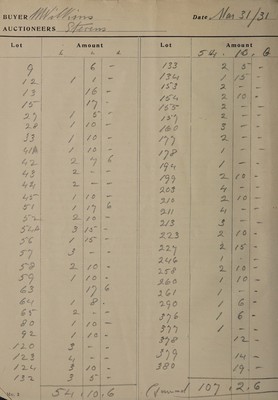 BUYER Williams Date Mar 31/31
AUCTIONEERS Stevens
Lot Amount Lot Amount
£ s. d. 54 . 10 . 6
9 6 -
12 1 1 -
13 16 -
15 17 -
27 1 5 -
28 1 10 -
33 1 10 -
41A 1 10 -
42 2 7 6
43 2 - -
44 2 - -
45 1 10 -
51 1 17 6
52 2 10 -
52A 3 15 -
56 1 15 -
57 3 - -
58 2 10 -
59 1 10 -
63 17 6
64 1 8 -
65 2 - -
80 1 10 -
92 1 10 -
120 3 - -
123 4 - -
124 3 10 -
132 3 5 -
54 . 10 . 6
133 2 5 -
134 1 15 -
153 2 - -
154 2 10 -
155 2 - -
157 2 - -
160 3 - -
177 2 - -
178 1 - -
194 1 - -
199 2 10 -
203 4 - -
210 2 10 -
211 4 - -
213 3 - -
223 2 10 -
227 2 15 -
246 1 - -
258 2 10 -
260 1 10 -
261 1 - -
290 1 6 -
376 1 6 -
377 1 - -
378 12 -
379 14 -
380 19 -
107 . 2 . 6